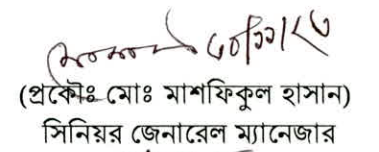 ৩০/১১/২৩
(প্রকৌঃ মোঃ মাশফিকুল হাসান)
সিনিয়র জেনারেল ম্যানেজার